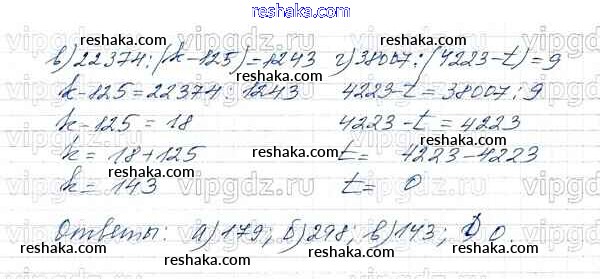 reshaka.com
в) 22374:(k-125)=1243 г) 38007:(4223-t)=9
k-125=22374:1243 4223-t=38007:9
k-125=18 4223-t=4223
k=18+125 t=4223-4223
k=143 t=0
Ответы: а) 179; б) 298; в) 143; г) 0.
reshaka.com reshaka.com
reshaka.com reshaka.com
reshaka.com reshaka.com
reshaka.com reshaka.com reshaka.com
vipgdz.ru